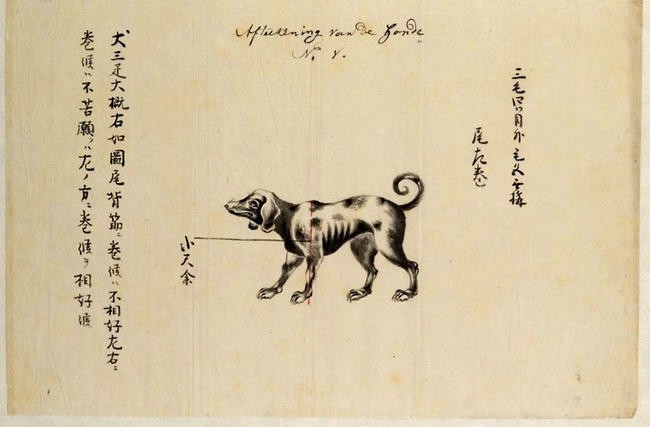 Afteekening van de Honde
N. 
三毛四ツ目外毛
尾左巻
尺余
犬三疋大概右如圖尾背筋ニ巻候ハ不相好左右ニ
巻候ハ不苦願クハ左ノ方ニ巻候ヲ相好候